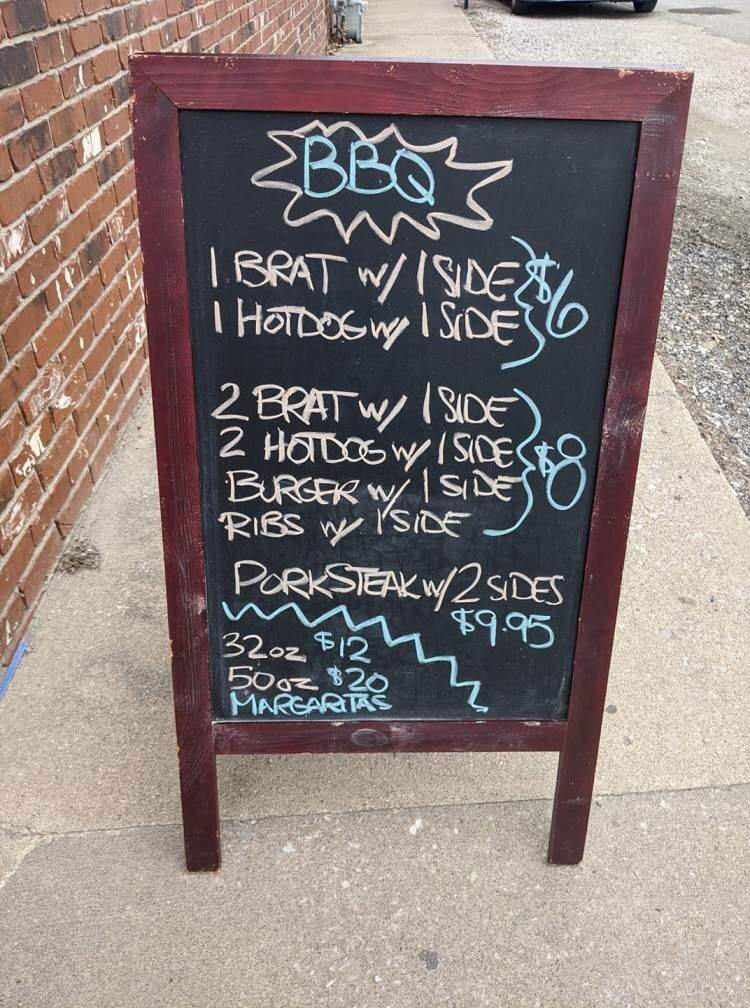 BBQ
1 BRAT w/ 1 SIDE
1 HOTDOG w/ 1 SIDE
$6
2 BRAT w/ 1 SIDE
2 HOTDOG w/ 1 SIDE
BURGER w/ 1 SIDE
RIBS w/ 1 SIDE
$8
PORKSTEAK w/ 2 SIDES
$9.95
32oz $12
50oz $20
MARGARITAS